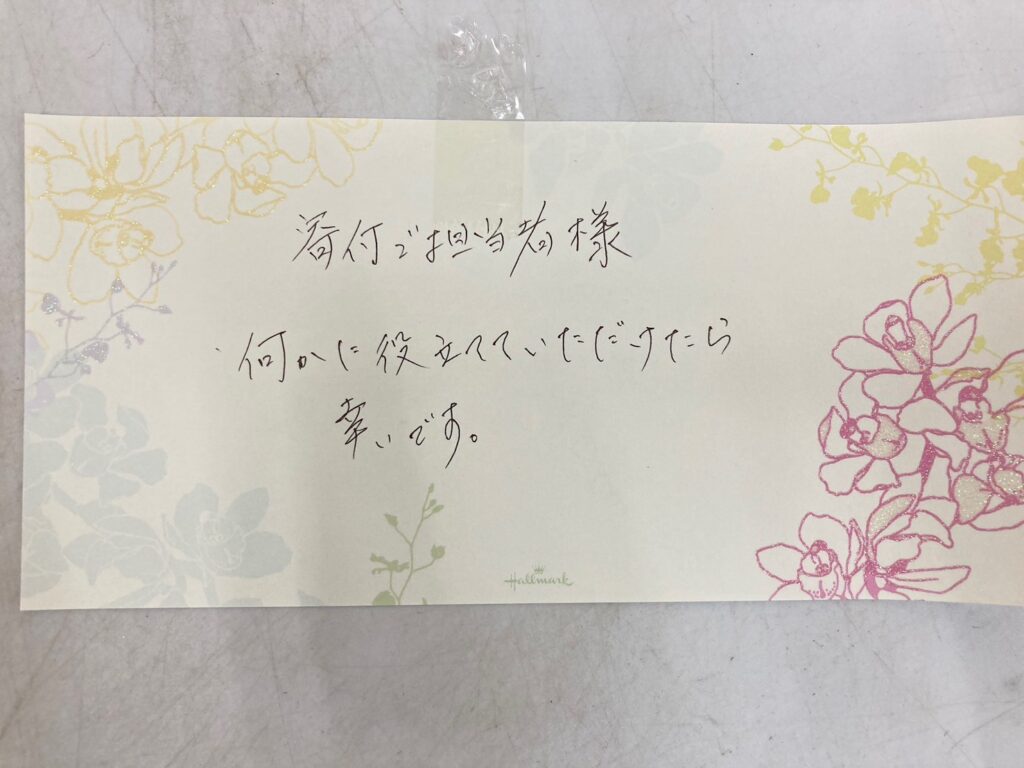 寄付ご担当者様
何かに役立てていただけたら
幸いです。
Hallmark